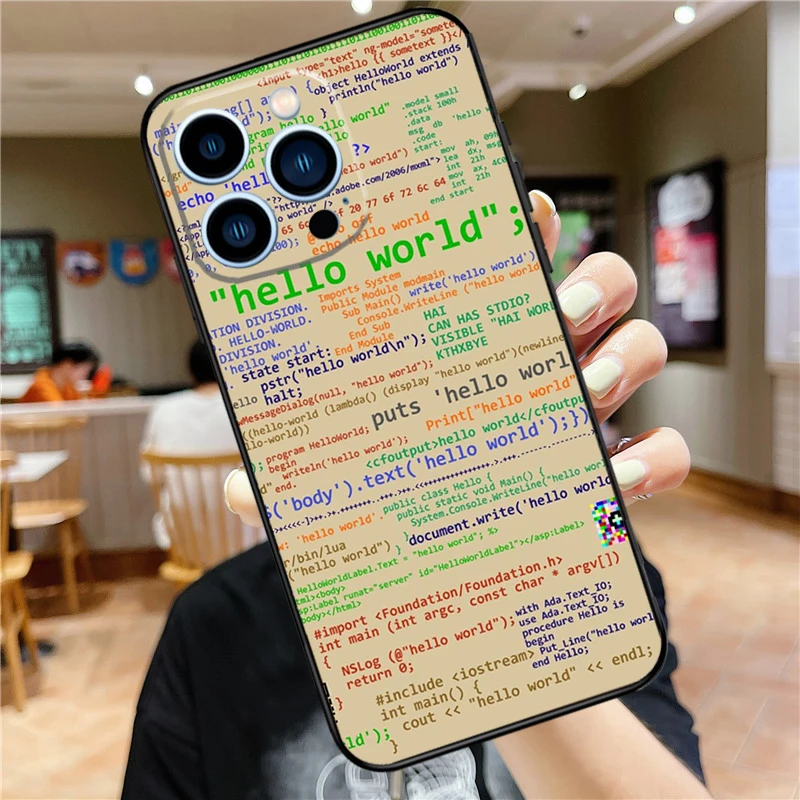 <input type="text" ng-model="somete
<h1>hello {{ sometext }}</
object HelloWorld extends
println("hello world")
}
.model small
.stack 100h
.data
msg db 'hello w
.code
start:
mov ah, 09h
lea dx, msg
int 21h
mov ax, 4C0
int 21h
end start
?>
echo 'hello
.adobe.com/2006/mxml">
20 77 6f 72 6c 64
echo hello world
"hello world";
TION DIVISION.
HELLO-WORLD.
DIVISION.
'hello world'.
Imports System
Public Module modmain
Sub Main()
Console.WriteLine ("hello world
End Sub
End Module
write('hello world')
HAI
CAN HAS STDIO?
VISIBLE "HAI WORL
KTHXBYE
state start:
pstr("hello world\n");
halt;
MessageDialog(null, "hello world");
((hello-world (lambda() (display "hello world")(newline
lo-world))
puts 'hello worl
Print["hello world"
program HelloWorld;
begin
writeln('hello world');
end.
<cfoutput>hello world</cfoutpu
$('body').text('hello world');})
public class Hello {
public static void Main() {
System.Console.WriteLine("hello wor
} }
document.write('hello world
r/bin/lua
("hello world")
HelloWorldLabel.Text = "hello world"; %>
tml><body>
sp:Label runat="server" id="HelloWorldLabel"></asp:Label>
body></html>
#import <Foundation/Foundation.h>
int main (int argc, const char * argv[])
{
NSLog (@"hello world");
return 0;
}
with Ada.Text_IO;
use Ada.Text_IO;
procedure Hello is
begin
Put_Line("hello worl
end Hello;
#include <iostream>
int main() {
cout << "hello world" << endl;
}
ld');